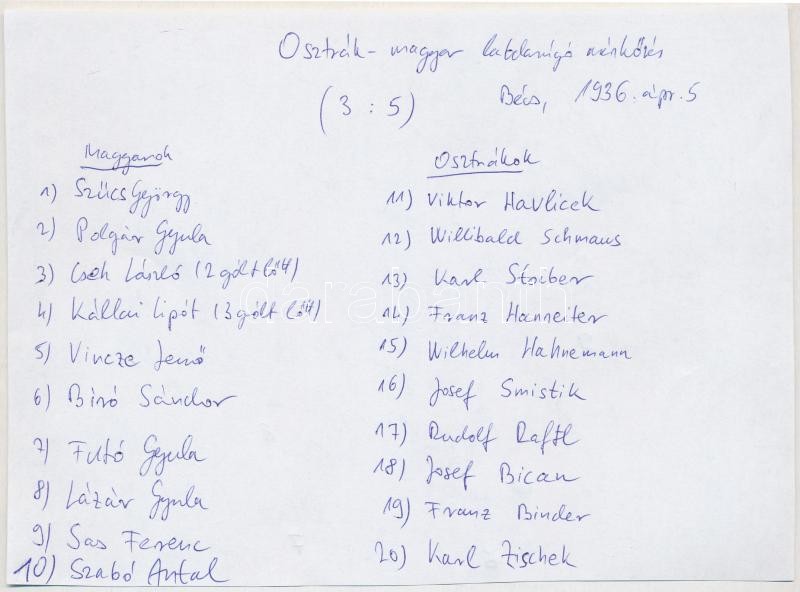 Osztrák - magyar labdarúgó mérkőzés
(3 : 5) Bécs, 1936. ápr. 5
Magyarok
1) Szűcs György
2) Polgár Gyula
3) Cseh László (2 gólt lőtt)
4) Kállai Lipót (3 gólt lőtt)
5) Vincze Jenő
6) Biró Sándor
7) Futó Gyula
8) Lázár Gyula
9) Sas Ferenc
10) Szabó Antal
Osztrákok
11) Viktor Havlicek
12) Willibald Schmaus
13) Karl Stoiber
14) Franz Hanreiter
15) Wilhelm Hahnemann
16) Josef Smistik
17) Rudolf Raftl
18) Josef Bican
19) Franz Binder
20) Karl Zischek
darabanth